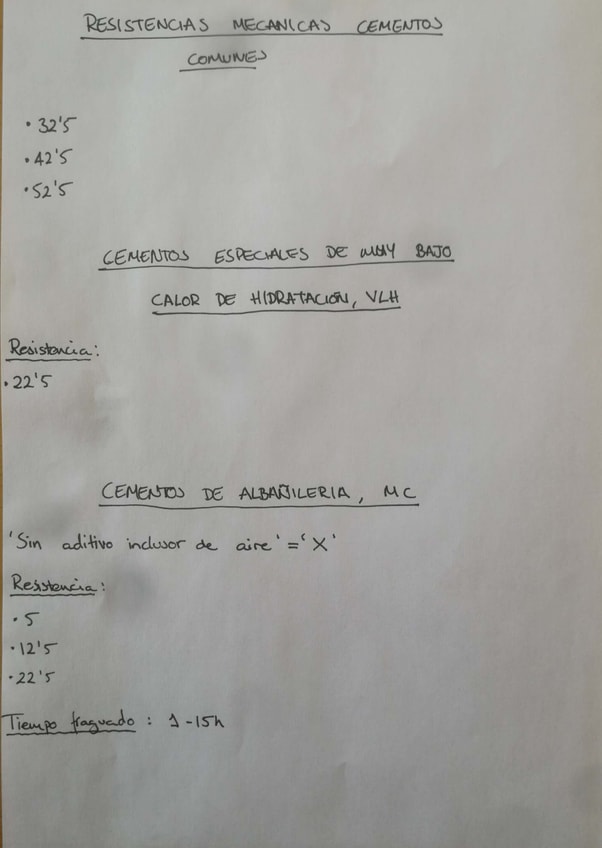 RESISTENCIAS MECANICAS CEMENTOS
COMUNES
• 32'5
• 42'5
• 52'5
CEMENTOS ESPECIALES DE MUY BAJO
CALOR DE HIDRATACIÓN, VLH
Resistencia:
• 22'5
CEMENTOS DE ALBAÑILERIA, MC
'Sin aditivo inclusor de aire' = 'X'
Resistencia:
• 5
• 12'5
• 22'5
Tiempo fraguado : 1-15h